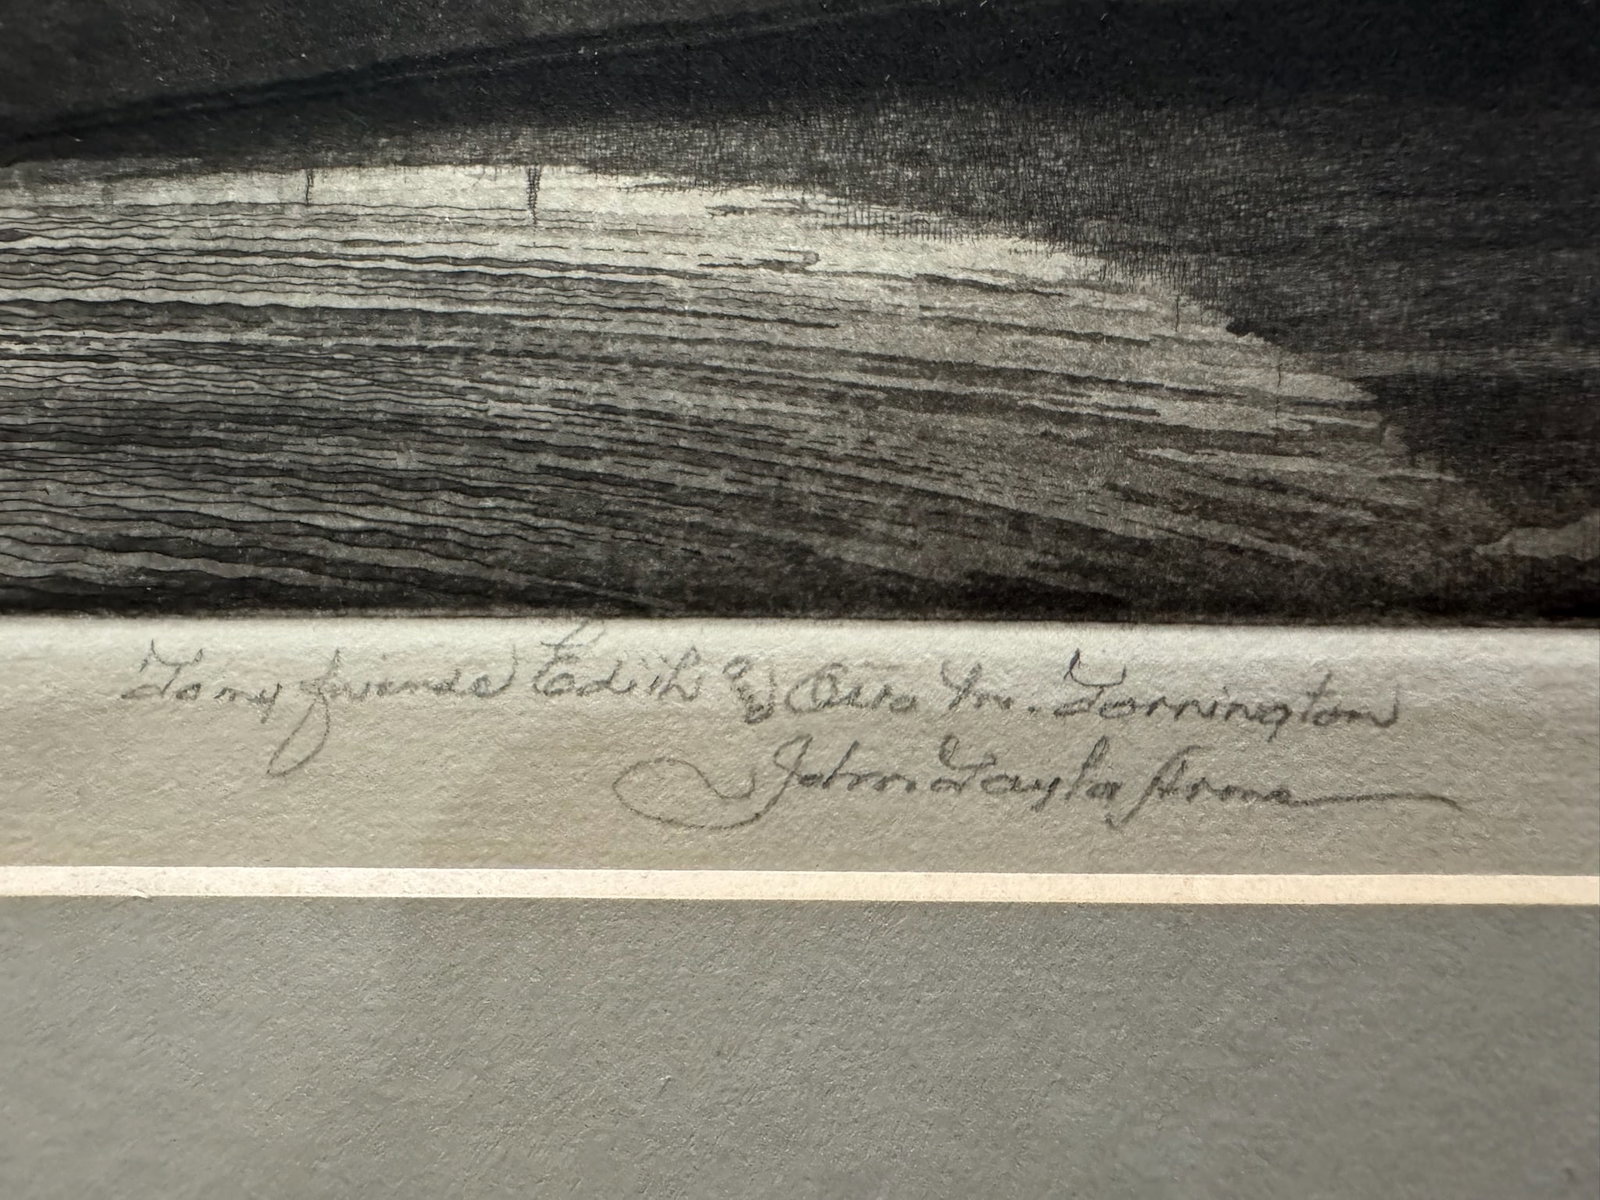 To my friends Edith & Otto M. Torrington
John Taylor Arms